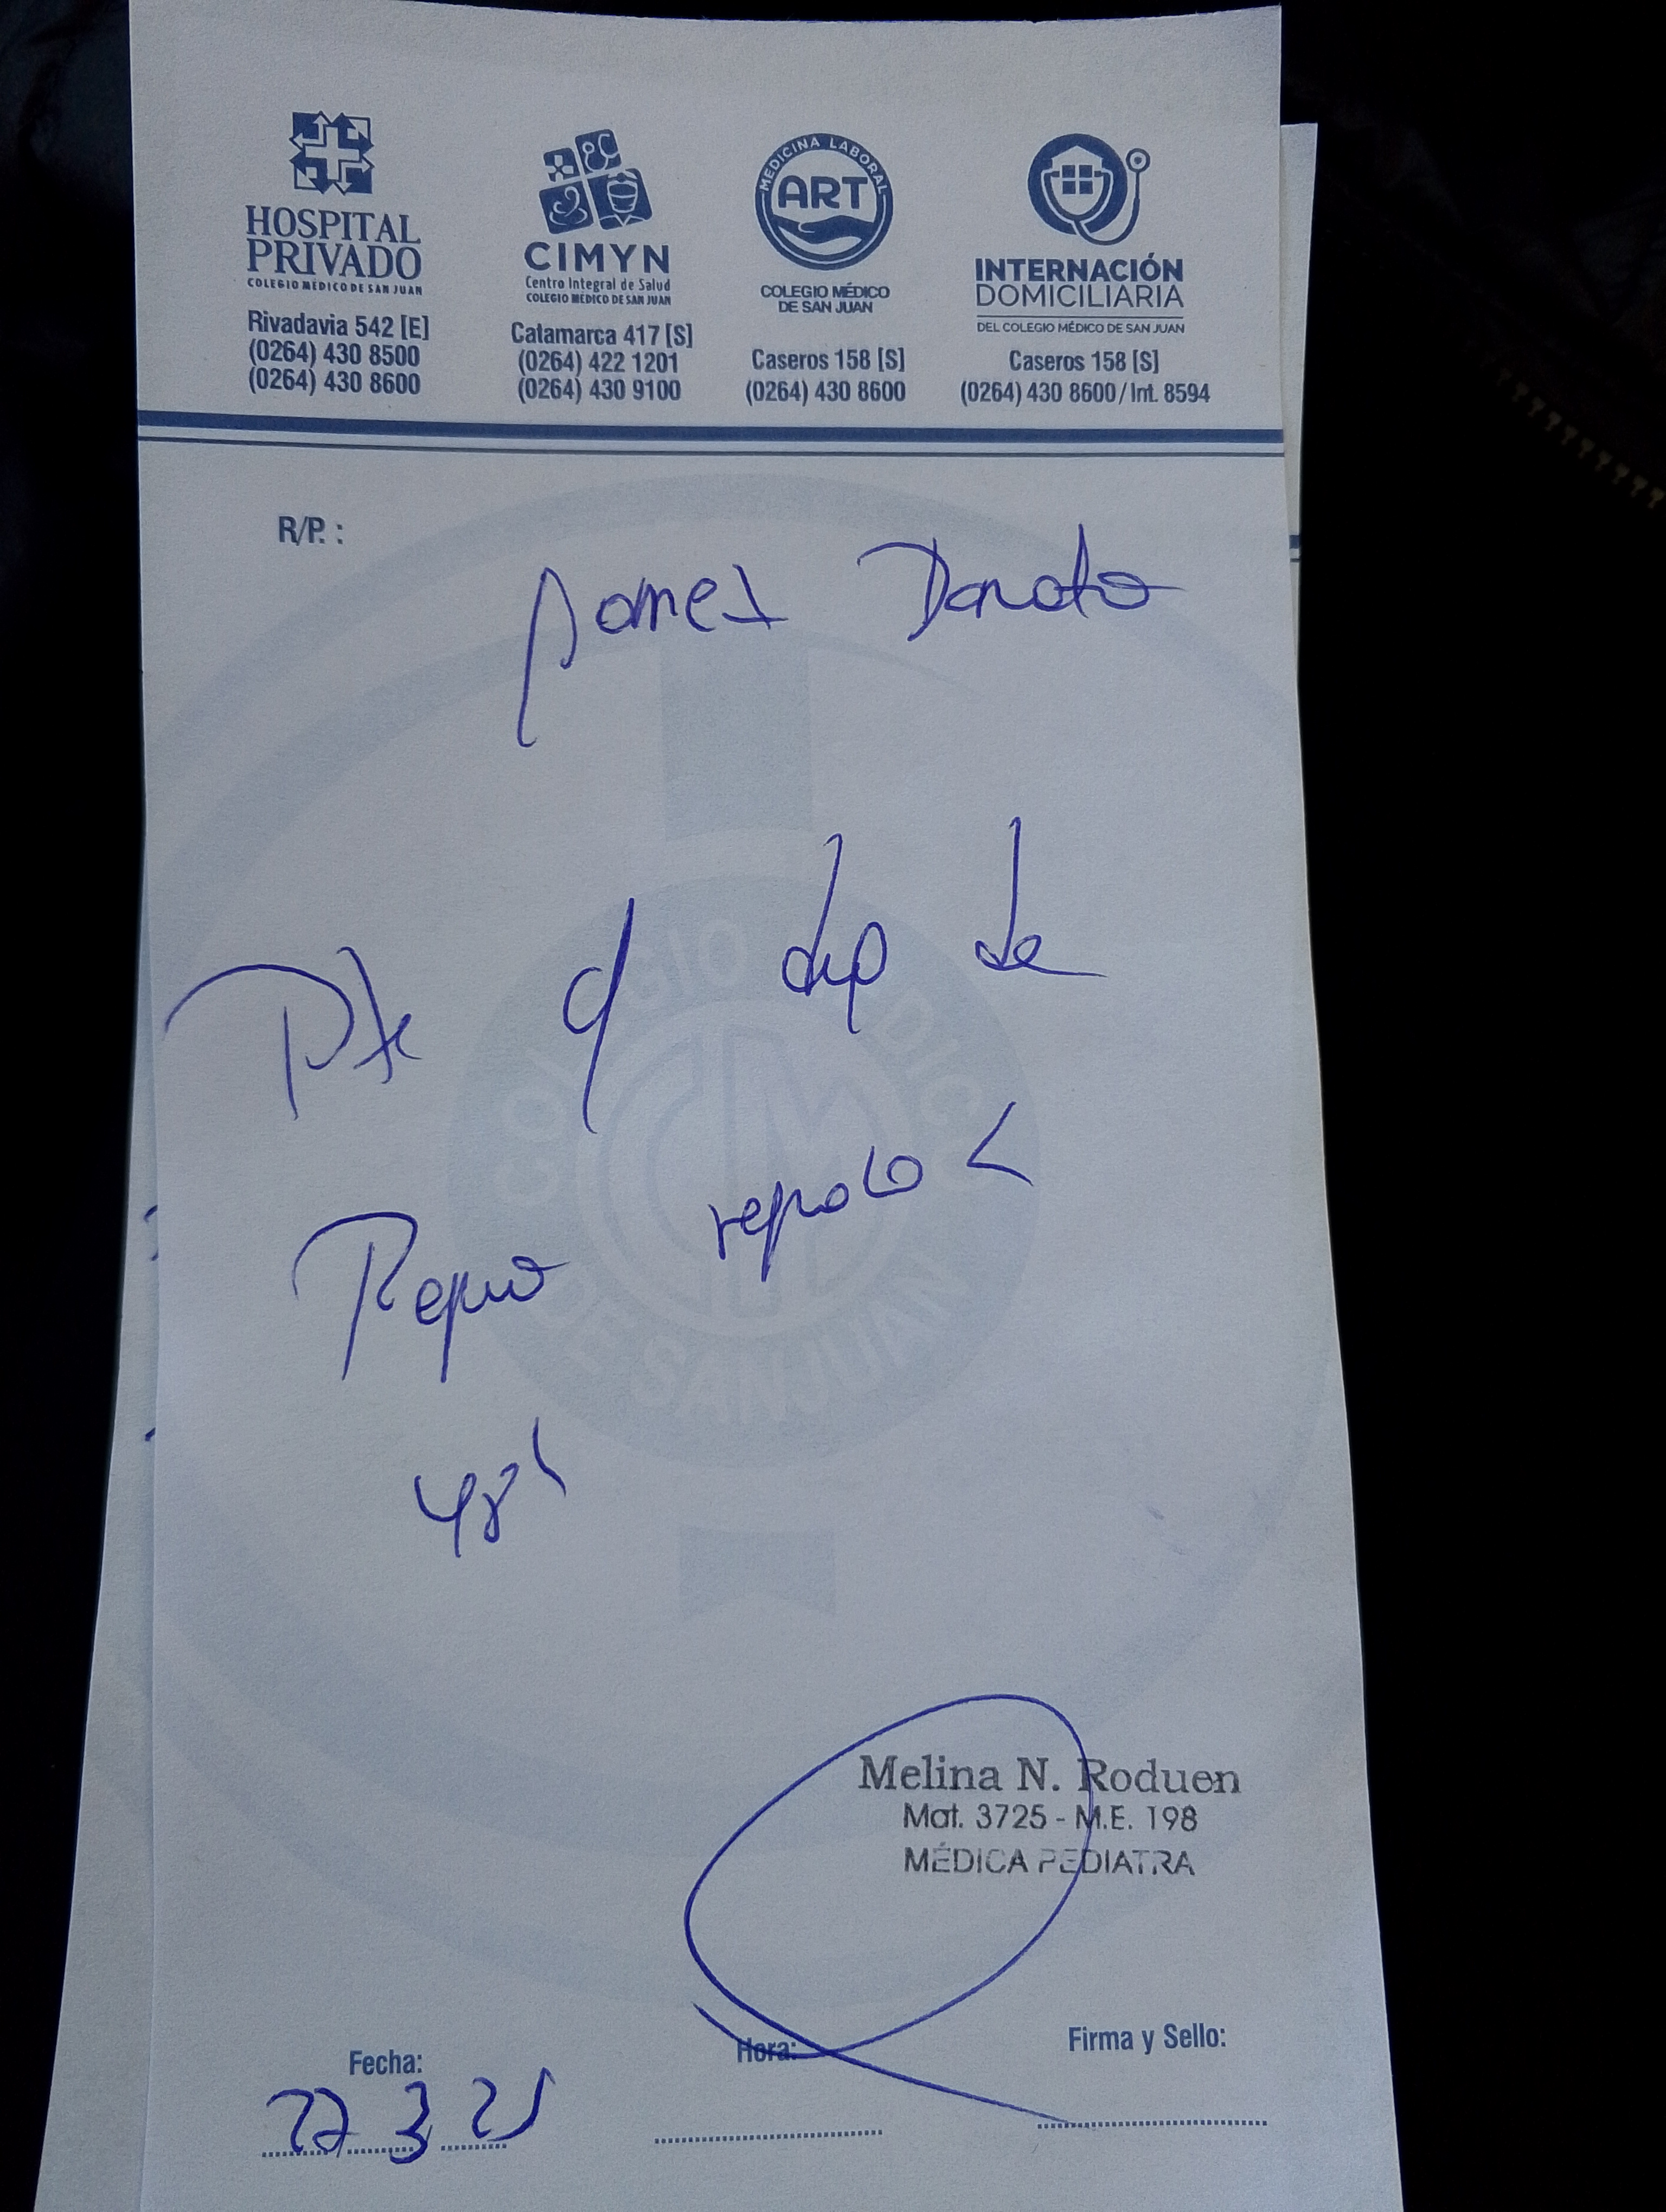 HOSPITAL
PRIVADO
COLEGIO MÉDICO DE SAN JUAN
Rivadavia 542 [E]
(0264) 430 8500
(0264) 430 8600
CIMYN
Centro Integral de Salud
COLEGIO MÉDICO DE SAN JUAN
Catamarca 417 [S]
(0264) 422 1201
(0264) 430 9100
MEDICINA LABORAL
ART
COLEGIO MÉDICO
DE SAN JUAN
Caseros 158 [S]
(0264) 430 8600
INTERNACIÓN
DOMICILIARIA
DEL COLEGIO MÉDICO DE SAN JUAN
Caseros 158 [S]
(0264) 430 8600 / Int. 8594
R/P. :
Pte c/ de
reposo
48h
COLEGIO MÉDICO
CM
DE SAN JUAN
Melina N. Roduen
Mat. 3725 - M.E. 198
MÉDICA PEDIATRA
Fecha:
Hora:
Firma y Sello:
3 25